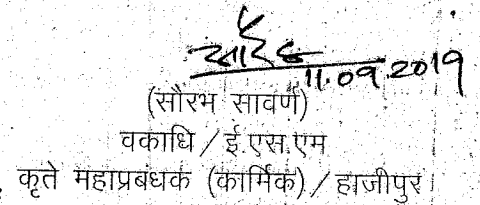 11.09.2019
(सौरभ सावर्ण)
वकाधि / ई.एस.एम
कृते महाप्रबंधक (कार्मिक) / हाजीपुर।